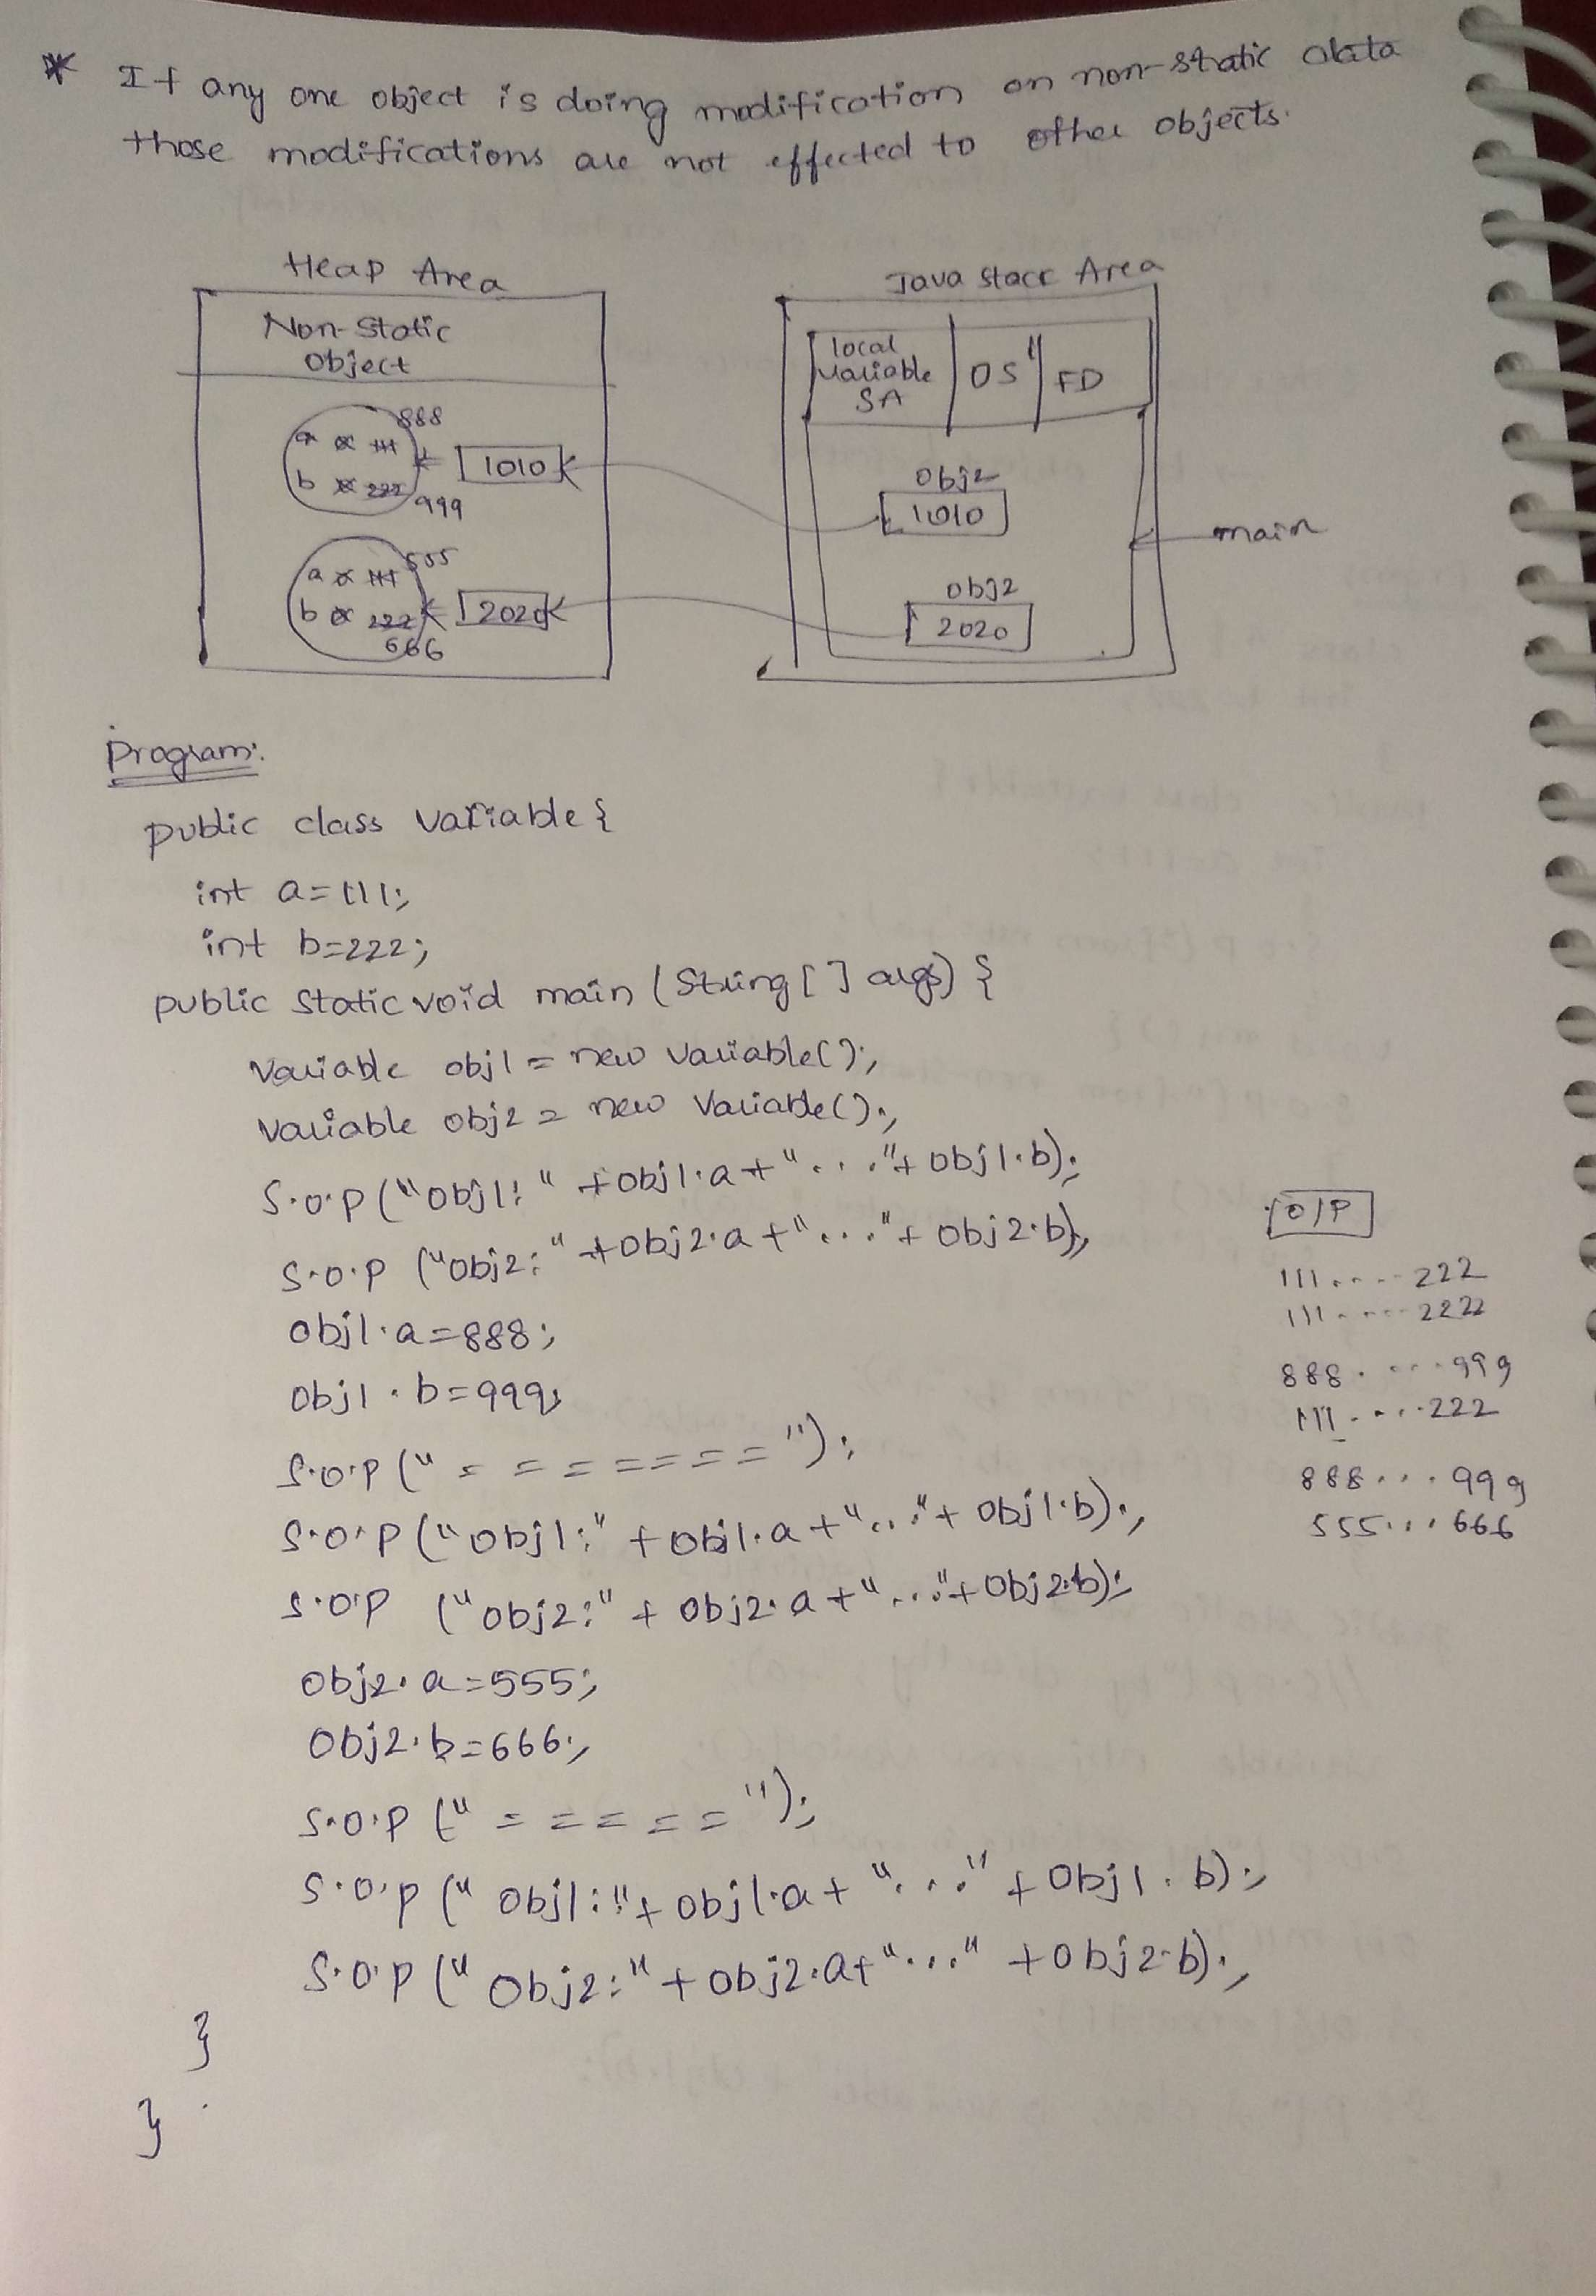 * If any one object is doing modification on non-static data
those modifications are not effected to other objects.
Heap Area
Non-Static
Object
a 888
b 222 999
1010
a 555
b 222 666
2020
Java Stack Area
local
variable
SA
OS
FD
obj2
1010
obj2
2020
main
Program:
public class variable {
int a=111;
int b=222;
public static void main (String [ ] args) {
Variable obj1 = new variable();
Variable obj2 = new Variable();
S.o.p ("obj1: " +obj1.a+"..."+obj1.b);
S.o.p ("obj2: "+obj2.a+"..."+obj2.b);
obj1.a=888;
obj1.b=999;
S.o.p ("=======");
S.o.p ("obj1:" +obj1.a+"..."+obj1.b);
S.o.p ("obj2:" + obj2.a+"..."+obj2.b);
obj2.a=555;
obj2.b=666;
S.o.p ("=====");
S.o.p ("obj1:"+obj1.a+"..."+obj1.b);
S.o.p ("obj2:"+obj2.a+"..."+obj2.b);
}
}
O/P
111....222
111....2222
888....999
111....222
888...999
555...666